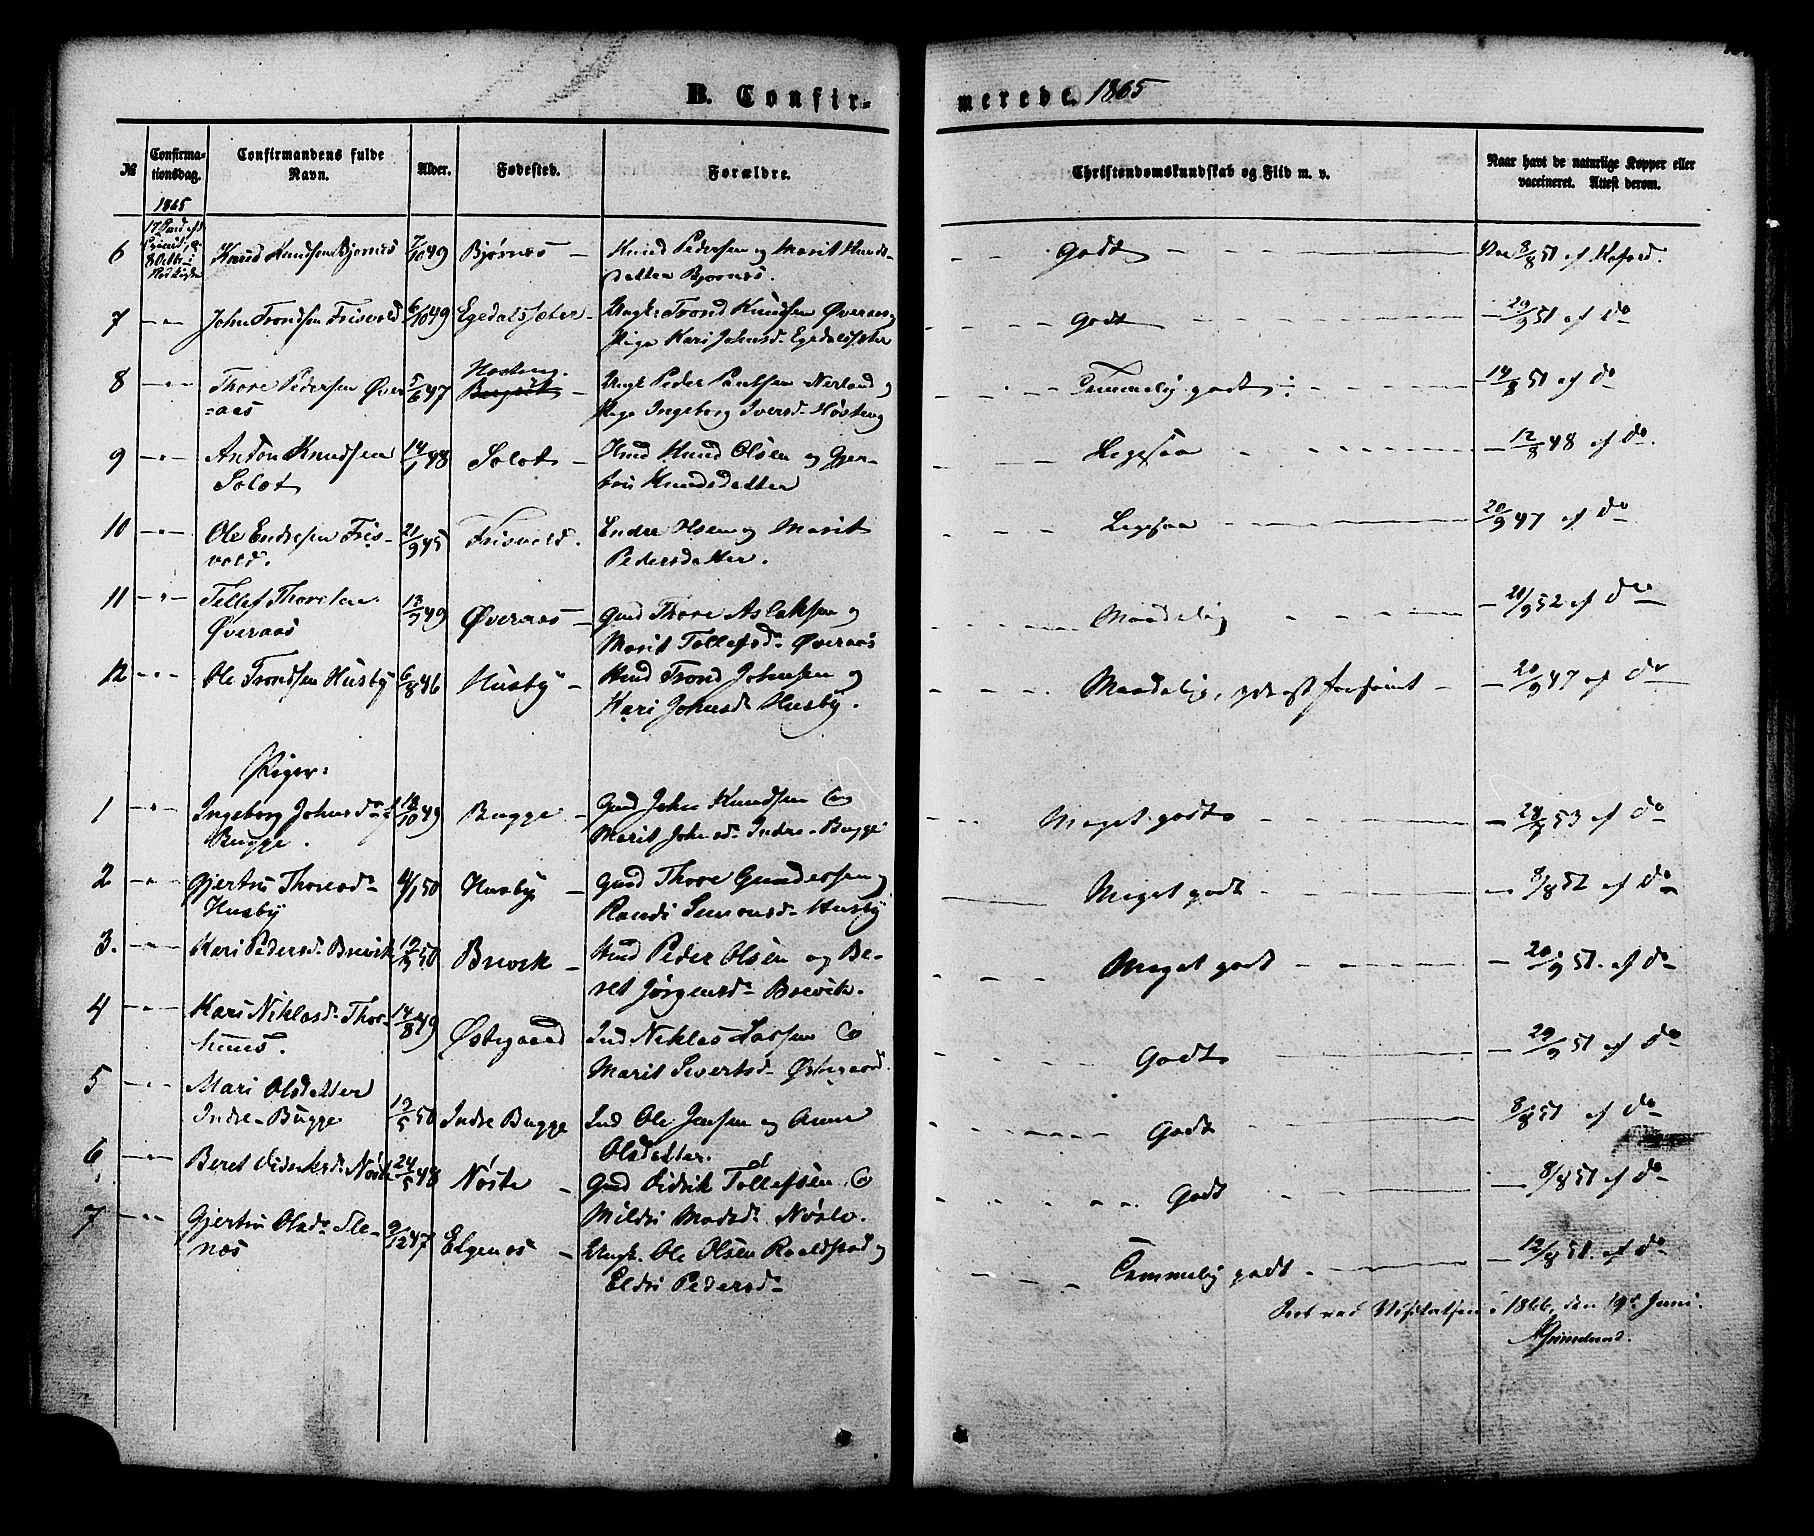 B. Confir-
merede. 1865
№
Confirma-
tionsdag.
Confirmandens fulde
Navn.
Alder.
Fødested.
Forældre.
Christendomskundskab og Flid m. v.
Naar havt de naturlige Kopper eller
vaccineret. Attest derom.
1865
6 Knud Knudsen Bjørnæs 7/10 49 Bjørnæs - Knud Pedersen og Marit Knuds-
datter Bjørnæs. Godt Vac 8/8 51 af
7 -"- John Trondsen Frisvold 6/10 49 Egedalssæter - Ungk. Trond Knudsen Øveraas og
Pige Kari Johnsd. Egedalssæter Godt 29/9 51 af do
8 -"- Thore Pedersen Øver-
aas 5/6 47 - Ungk Peder Nerland og
Pige Ingeborg Iversd. Temmelig godt 14/8 51 af do
9 -"- Anton Knudsen
Solot 14/1 48 Solot - Knud Olsen og Gjer-
Knudsdatter Ligesaa - 12/8 48 af do.
10 -"- Ole Endresen Fris-
vold. 21/9 45 Frisvold. Endre og Marit
Pedersdatter. Ligesaa 20/9 47 af do
11 -"- Tollef Thoresen
Øveraas 13/7 49 Øveraas - Gmd Thore Aslaksen og
Marit Tollefsd. Øveraas Maadelig - 52 af do
12 -"- Ole Trondsen Husby 6/8 46 Husby - Trond Johnsen og
Kari Johnsd. Husby. Maadelig, forsømt - 20/9 47 af do
Piger:
1 -"- Ingeborg Johnsd.
Bugge. 49 Bugge - Gmd John Knudsen og
Marit Johnsd. Indre-Bugge Meget godt - 53 af do
2 -"- Gjertru Thoresd.
Husby 50 Husby - Gmd Thore Gundersen og
Randi Simonsd. Husby Meget godt - 8/8 52 af do
3. -"- Kari Pedersd. Brevik 50 Brevik - Peder Olsen og Be-
ret Jørgensd. Brevik. Meget godt - 20/9 51. af do
4 -"- Kari Niklasd. Thor-
huus. 14/8 49 Østigaard Ind Niklas Larsen og
Marit Sivertsd. Østigaard. Godt - 29/9 51 af do
5 -"- Mari Olsdatter
Indre-Bugge 19/5 50 Indre Bugge Ind Ole Jensen og Anne
Olsdatter. Godt 8/8 51 af do
6 -"- Beret Didriksd. Nöste 24/5 48 Nöste - Gmd Didrik Tollefsen og
Mildri Madsd. Nöste. Godt - 8/8 51 af do
7 -"- Gjertru Olsd. Ele-
næs 9/12 47 Elgenæs - Ungk. Ole Olsen Roaldstad og
Eldri Pedersd. Temmelig godt - 12/8 51. af do
Seet ved Visitatsen i 1866, den 19de Juni.
Grimelund.